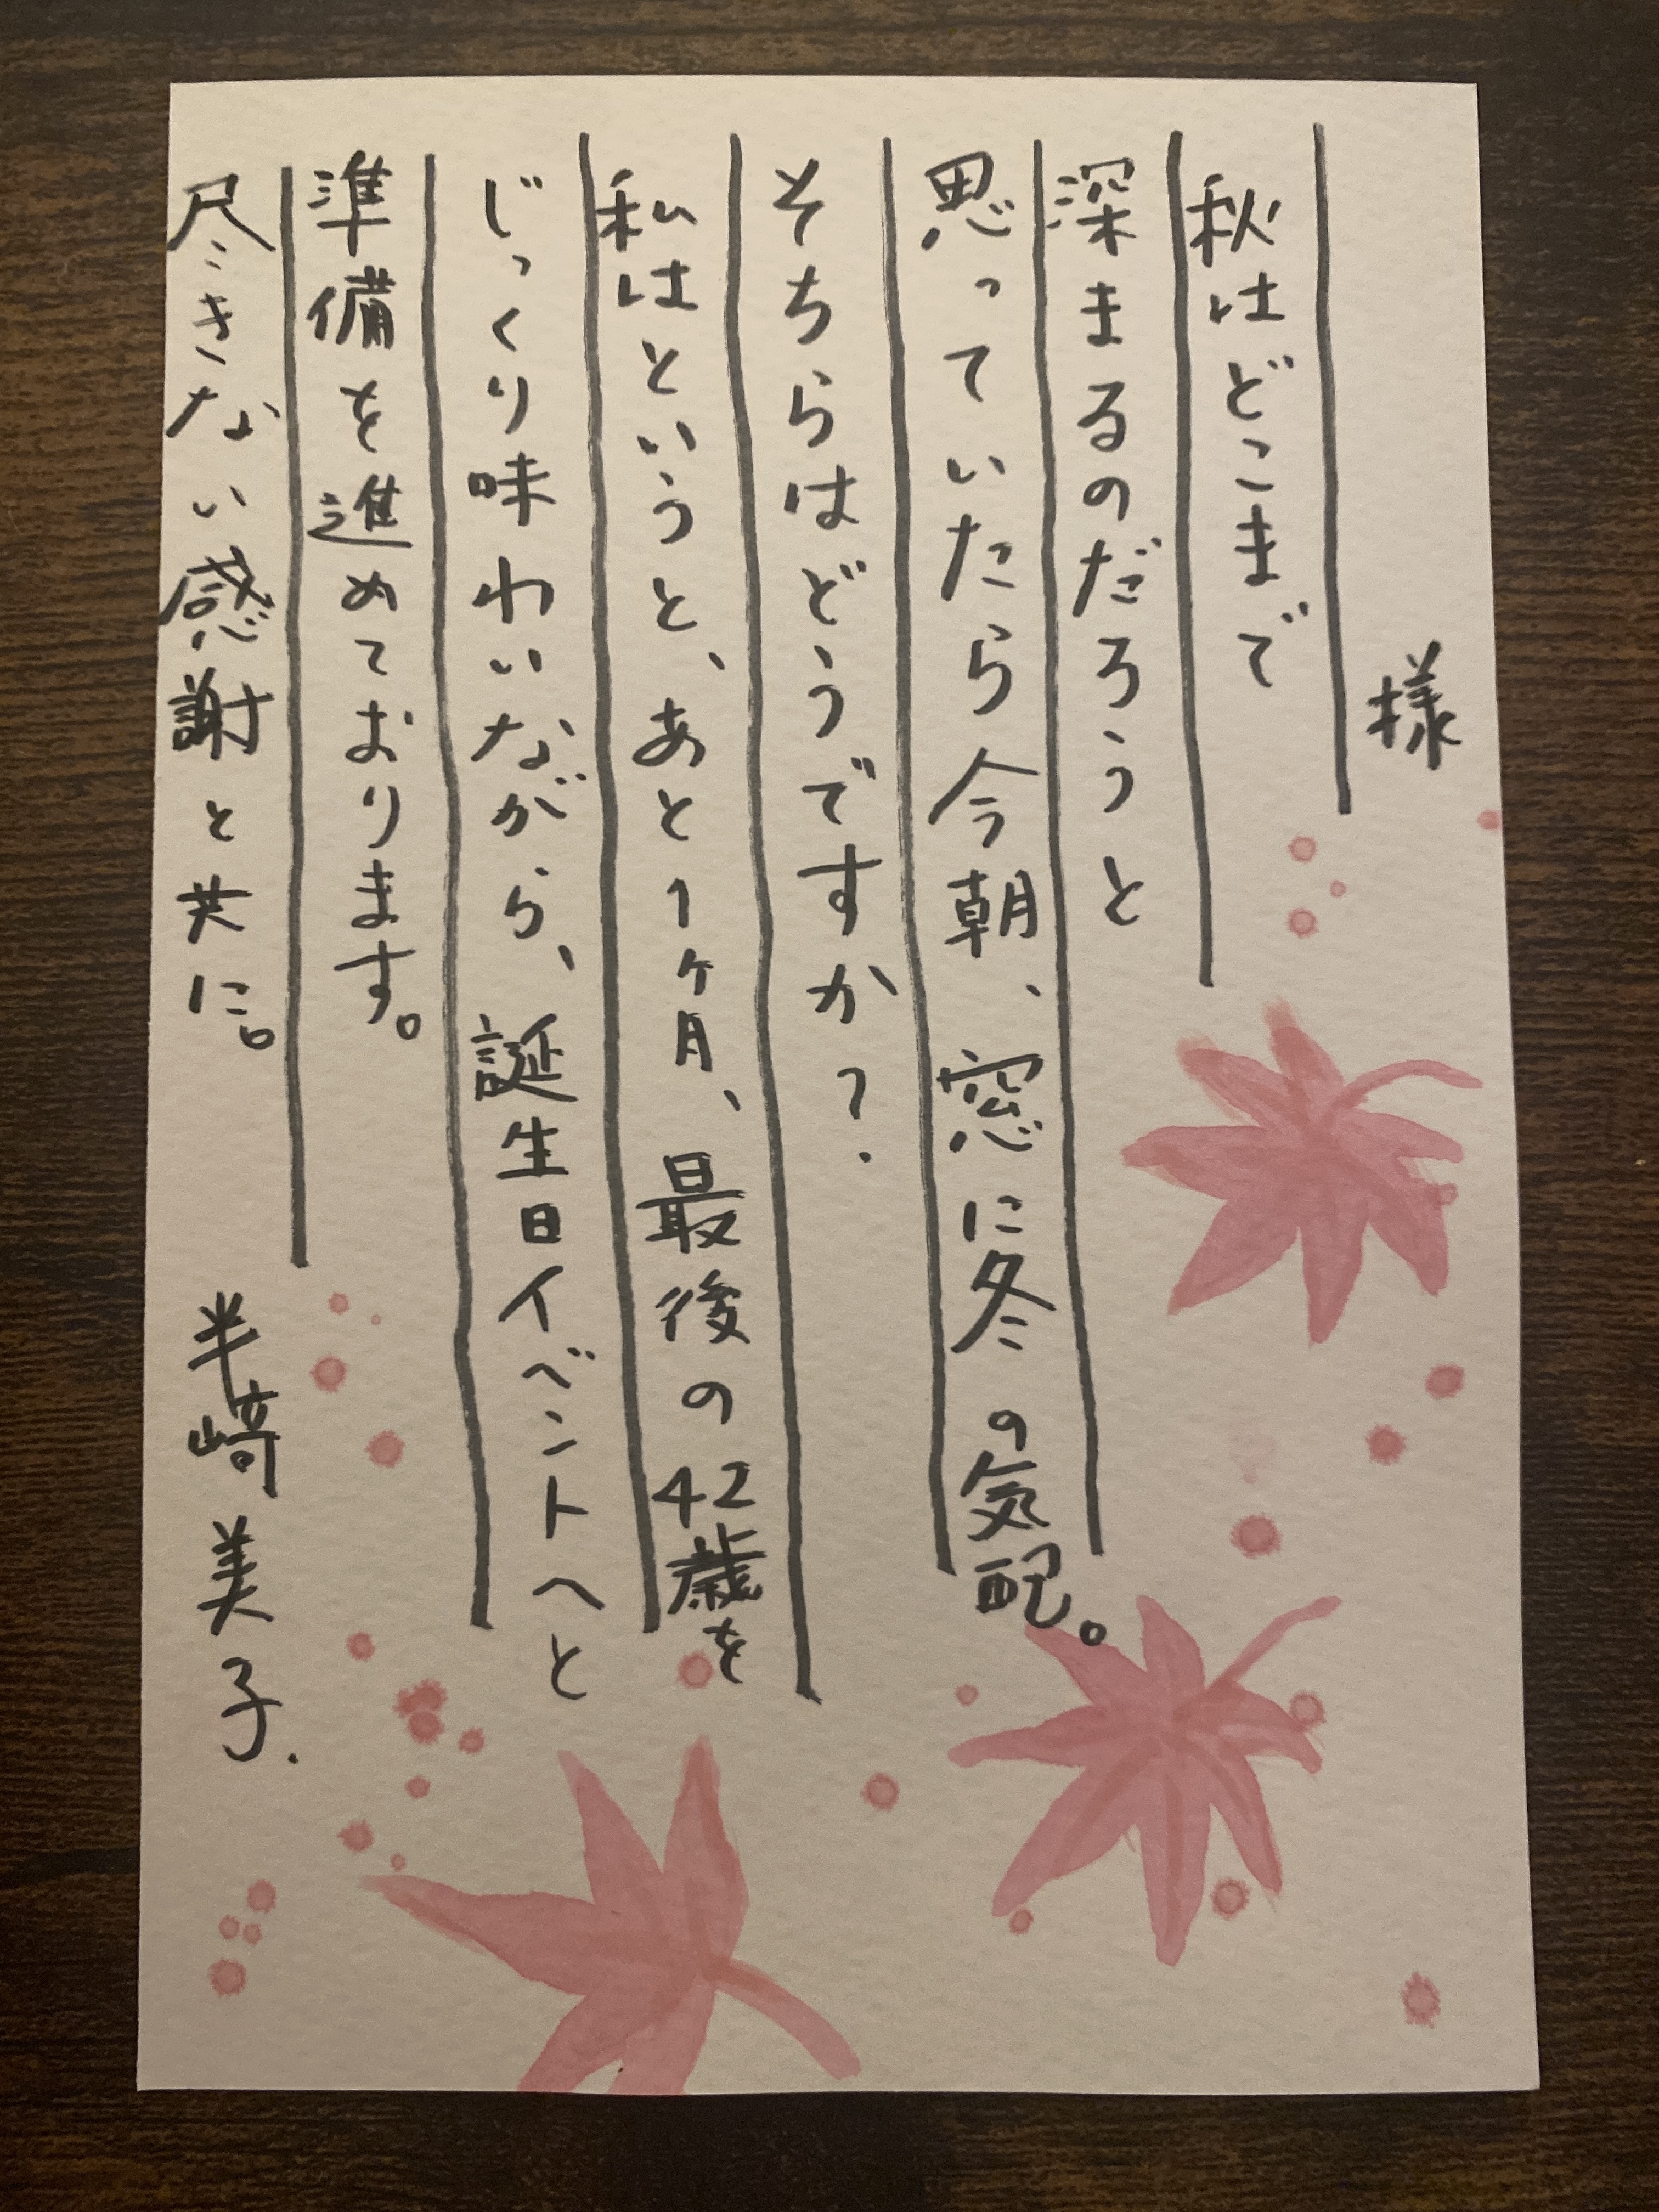 様
秋はどこまで
深まるのだろうと
思っていたら今朝、窓に冬の気配。
そちらはどうですか?
私はというと、あと1ヶ月、最後の42歳を
じっくり味わいながら、誕生日イベントへと
準備を進めております。
尽きない感謝と共に。
半崎美子.